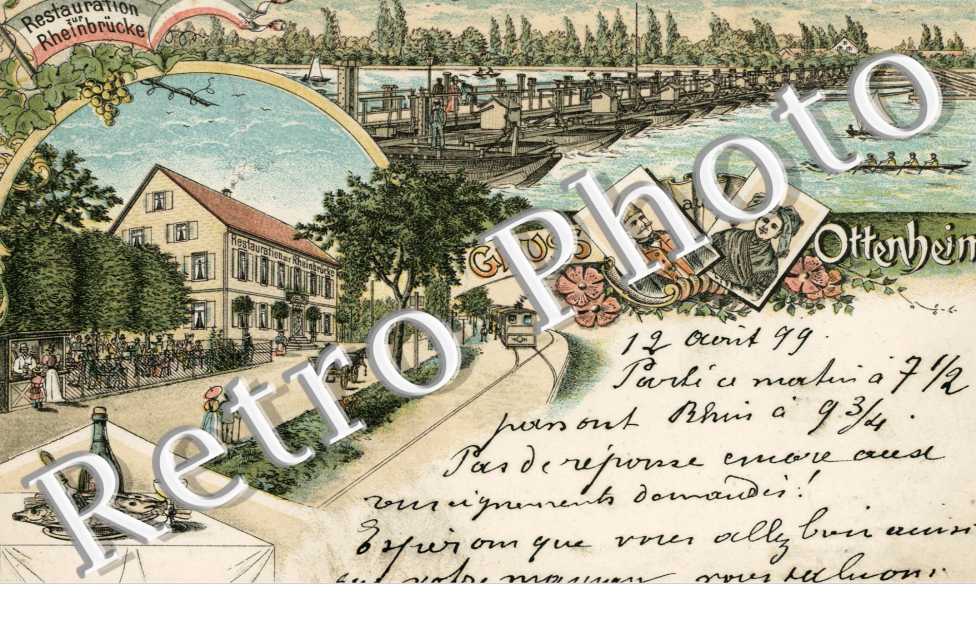 Restauration
zur
Rheinbrücke
Restauration zur Rheinbrücke
Gruss aus
Ottenheim
Retro Photo
12 août 99.
Parti ce matin à 7 1/2
passant Rhin à 9 3/4.
Pas de réponse encore aux
renseignements demandés!
Espérons que vous allez bien ainsi
que votre maman vous saluons.